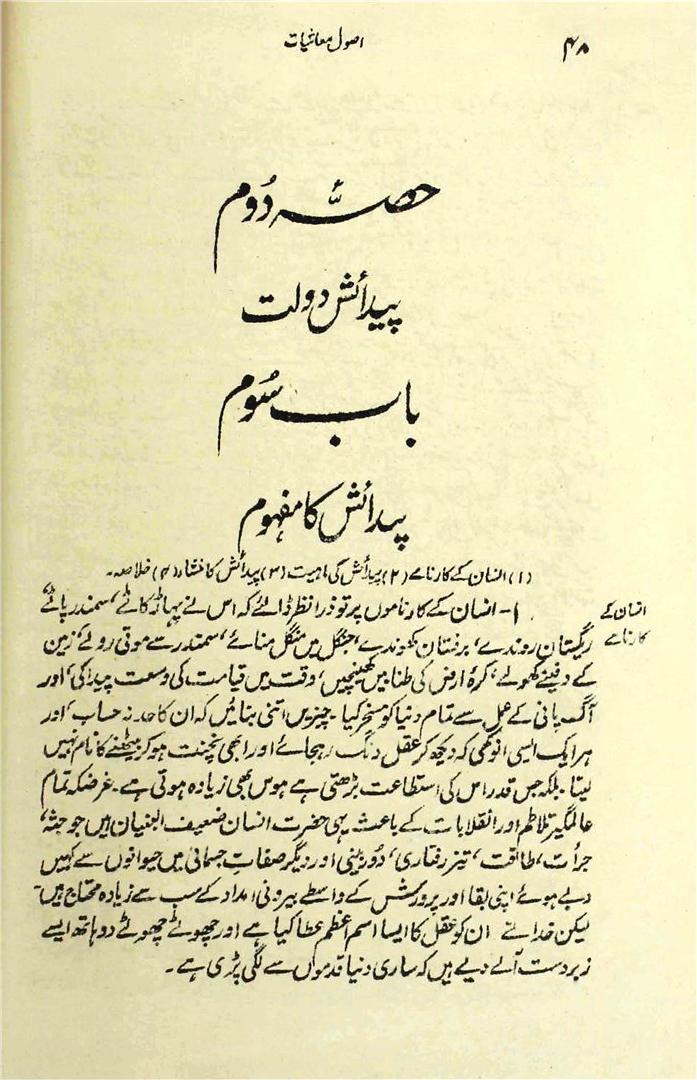 ۴۸
اصول معاشیات
حصۂ دُوم
پیدائش دولت
باب سُوم
پیدائش کا مفہوم
(۱) انسان کے کارنامے (۲) پیدائش کی اہمیت (۳) پیدائش کا منشاء (۴) خلاصہ۔
انسان کے
کارنامے
۱- انسان کے کارناموں پر تو ذرا نظر ڈالئے کہ اس نے پہاڑ کاٹے، سمندر پاٹے
ریگستان روندے، برفستان کھوندے، جنگل میں منگل منائے، سمندر سے موتی رولے، زمین
کے دفینے کھولے، کرۂ ارض کی طنابیں کھینچیں، وقت میں قیامت کی وسعت پیدا کی، اور
آگ پانی کے عمل سے تمام دنیا کو مسخر کیا۔ چیزیں اتنی بنائیں کہ ان کا حد نہ حساب، اور
ہر ایک ایسی انوکھی کہ دیکھ کر عقل دنگ رہجائے اور ابھی نچنت ہو کر بیٹھنے کا نام نہیں
لیتا۔ بلکہ جس قدر اس کی استطاعت بڑھتی ہے ہوس بھی زیادہ ہوتی ہے۔ غرضکہ تمام
عالمگیر تلاطم اور انقلابات کے باعث یہی حضرت انسان ضعیف البنیان ہیں جو جثہ،
جرأت، طاقت، تیز رفتاری، دُوربینی اور دیگر صفاتِ جسمانی میں حیوانوں سے کہیں
دبے ہوئے اپنی بقا اور پرورش کے واسطے بیرونی امداد کے سب سے زیادہ محتاج ہیں۔
لیکن خدا نے ان کو عقل کا ایسا اسم اعظم عطا کیا ہے اور چھوٹے چھوٹے دو ہاتھ ایسے
زبردست آلے دیے ہیں کہ ساری دنیا قدموں سے لگی پڑی ہے۔